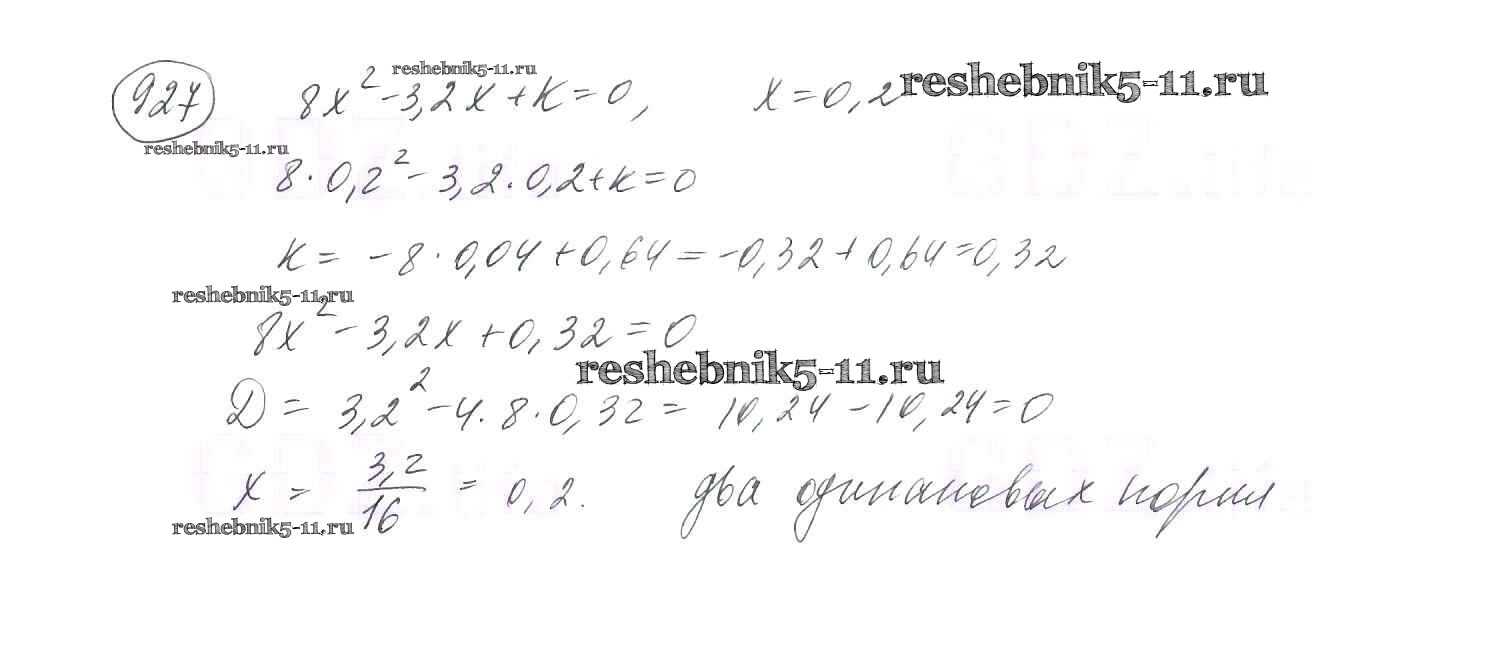 927 8x² - 3,2x + к = 0, x = 0,2 reshebnik5-11.ru reshebnik5-11.ru
reshebnik5-11.ru
8 · 0,2² - 3,2 · 0,2 + к = 0
к = - 8 · 0,04 + 0,64 = -0,32 + 0,64 = 0,32
reshebnik5-11.ru
8x² - 3,2x + 0,32 = 0
reshebnik5-11.ru
Д = 3,2² - 4 · 8 · 0,32 = 10,24 - 10,24 = 0
x = 3,2/16 = 0,2. два одинаковых корня
reshebnik5-11.ru